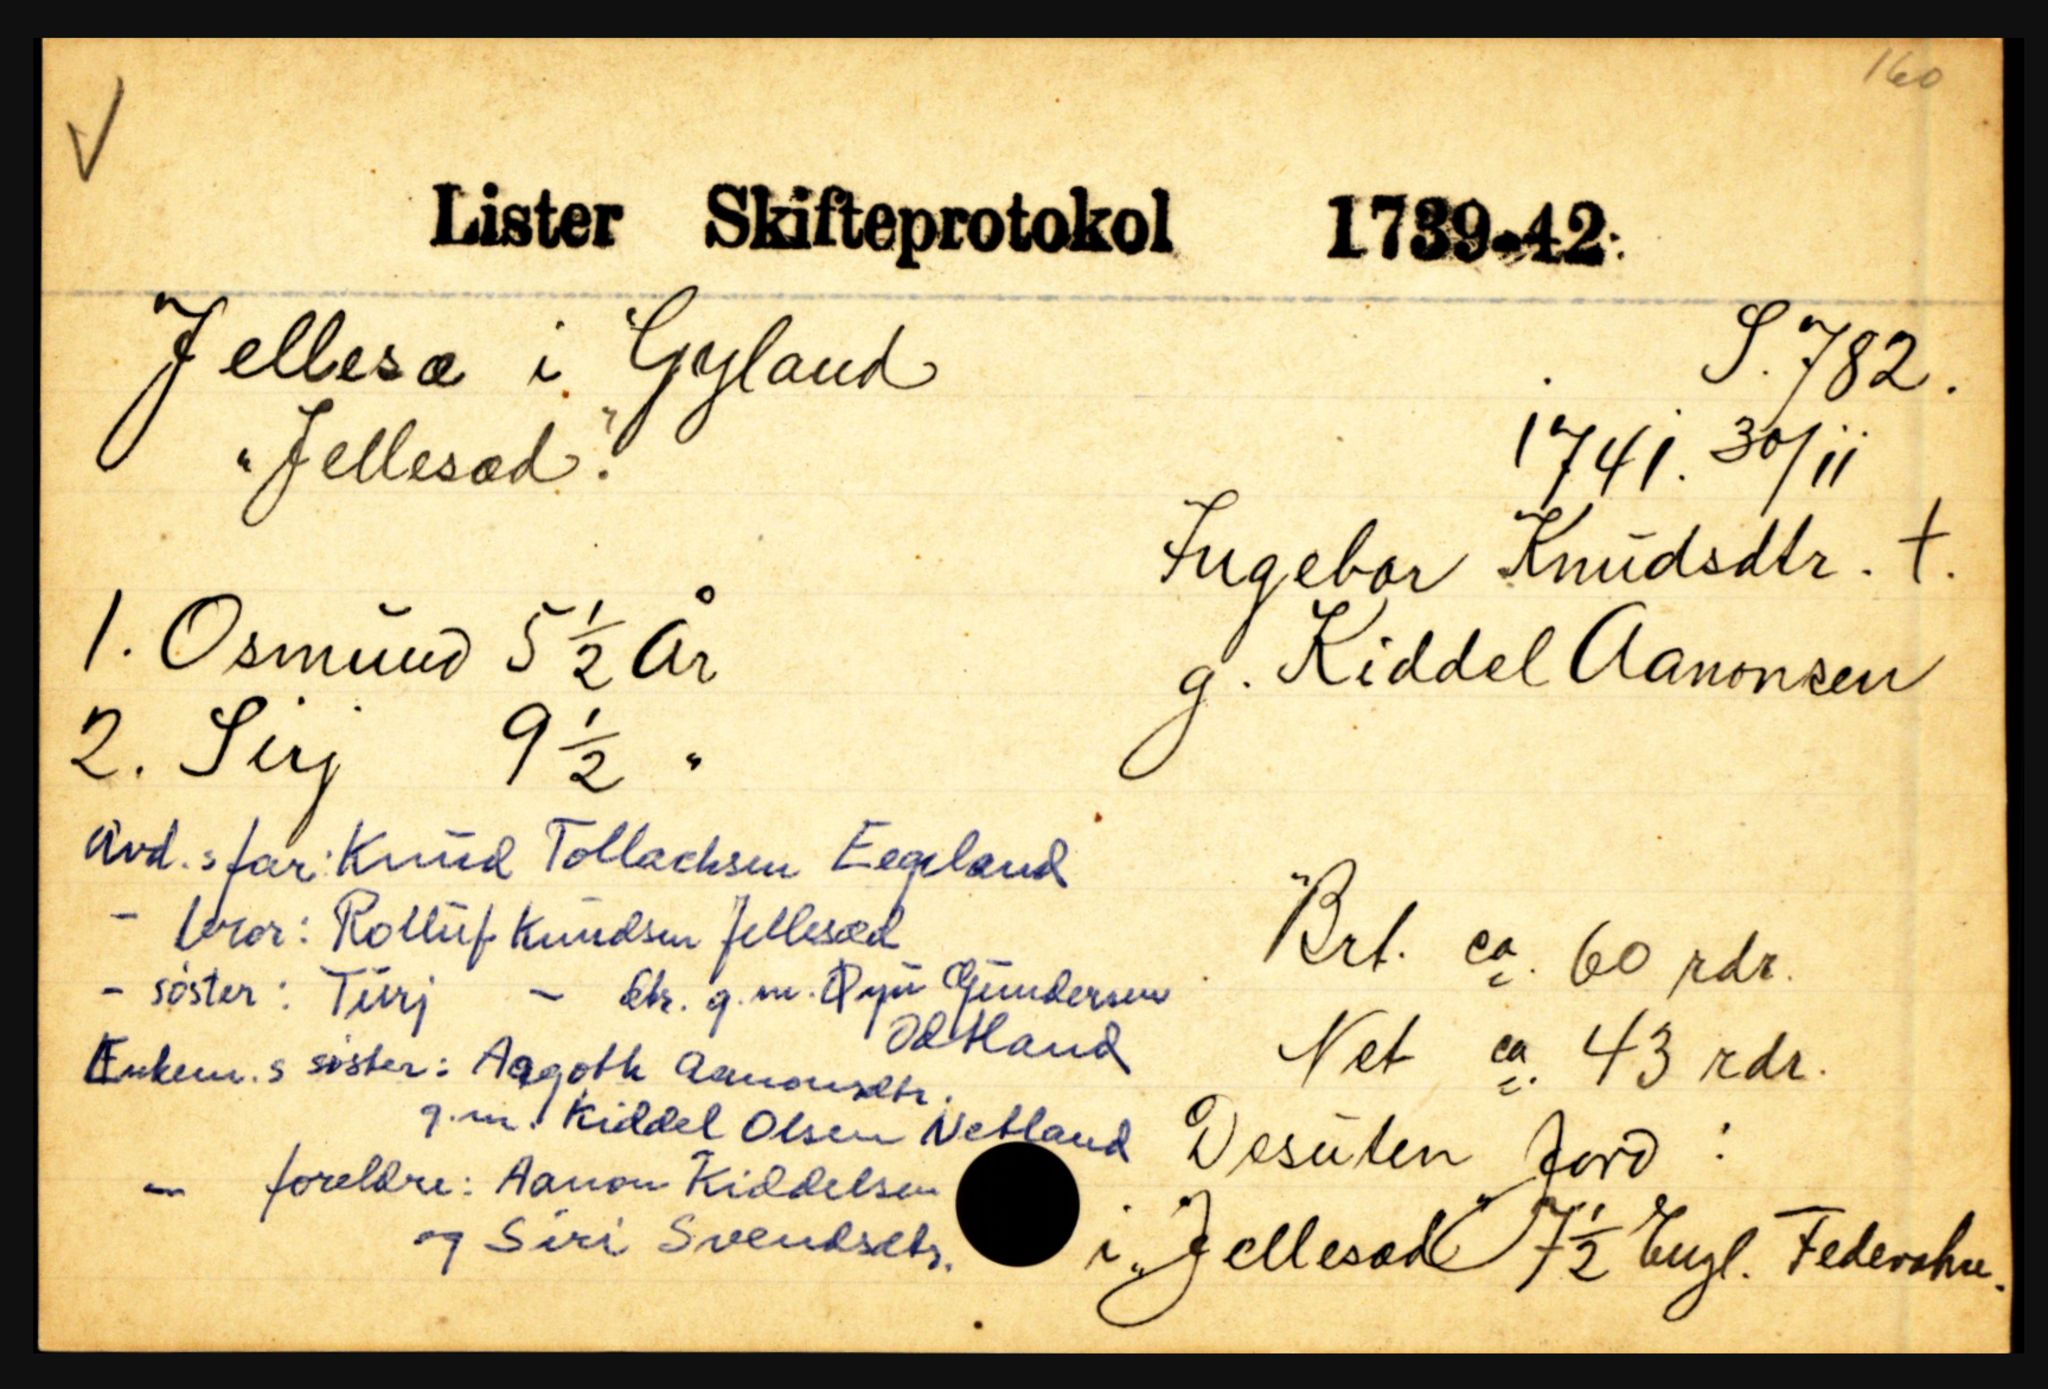 160
Lister Skifteprotokol 1739-42.
Jellesæ i Gyland
S. 782.
"Jellesæd".
1741. 30/11
Ingebor Knudsdtr. †.
g. Kiddel Aanonsen
1. Osmund 5 1/2 År
2. Sirj 9 1/2 "
Avd.s far: Knud Tollachsen Eegeland
- bror: Rolluf Knudsen Jellesæd
- søster: Turj - dtr. g.m. Gundersen
Enkem.s søster: Aagoth Aanonsdtr.
g.m. Kiddel Olsen Netland
- foreldre: Aanon Kiddelsen
og Siri Svendsdtr.
Brt. ca. 60 rdr.
Net ca. 43 rdr.
Desuten Jord:
i "Jellesæd" 7 1/2 Engl.